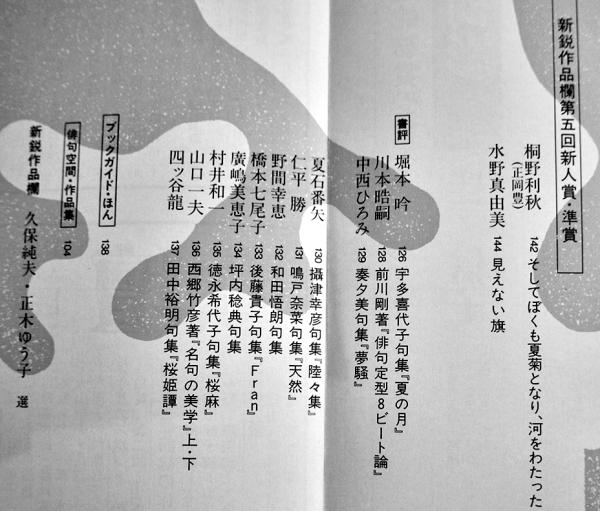 新鋭作品欄第五回新人賞・準賞
桐野利秋 142 そしてぼくも夏菊となり、河をわたった
(正岡豊)
水野真由美 144 見えない旗
書評
堀本 吟 126 宇多喜代子句集『夏の月』
川本皓嗣 128 前川剛著『俳句定型8ビート論』
中西ひろみ 129 奏夕美句集『夢騒』
夏石番矢 130 攝津幸彦句集『陸々集』
仁平 勝 131 鳴戸奈菜句集『天然』
野間幸恵 132 和田悟朗句集
橋本七尾子 133 後藤貴子句集『Fran』
廣嶋美恵子 134 坪内稔典句集
村井和一 135 徳永希代子句集『桜麻』
山口一夫 136 西郷竹彦著『名句の美学』上・下
四ッ谷龍 137 田中裕明句集『桜姫譚』
ブックガイド・ほん 138
俳句空間・作品集 104
新鋭作品欄 久保純夫・正木ゆう子 選